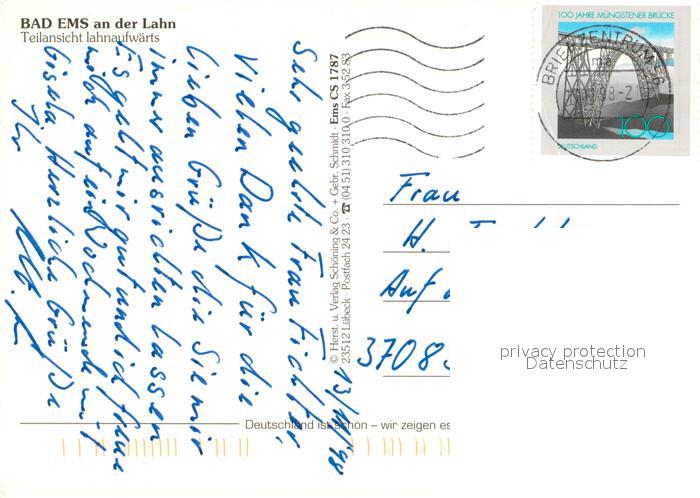 BAD EMS an der Lahn
Teilansicht lahnaufwärts
Sehr geehrte Frau Fichtler,
Vielen Dank für die
lieben Grüße die Sie mir
immer ausrichten lassen
Es geht mir gut und ich freue
mich auf ein Wochenende mit
Gisela. Herzliche Grüße
Ihr
13/11/98
© Herst. u. Verlag Schöning & Co. + Gebr. Schmidt · Ems CS 1787
23512 Lübeck · Postfach 24 23 · ☎ (04 51) 310 310,0 · Fax 3 52 83
Deutschland ist schön – wir zeigen es
100 JAHRE MÜNGSTENER BRÜCKE
100
DEUTSCHLAND
BRIEFZENTRUM 56
Frau
H.
Auf
3708
privacy protection
Datenschutz